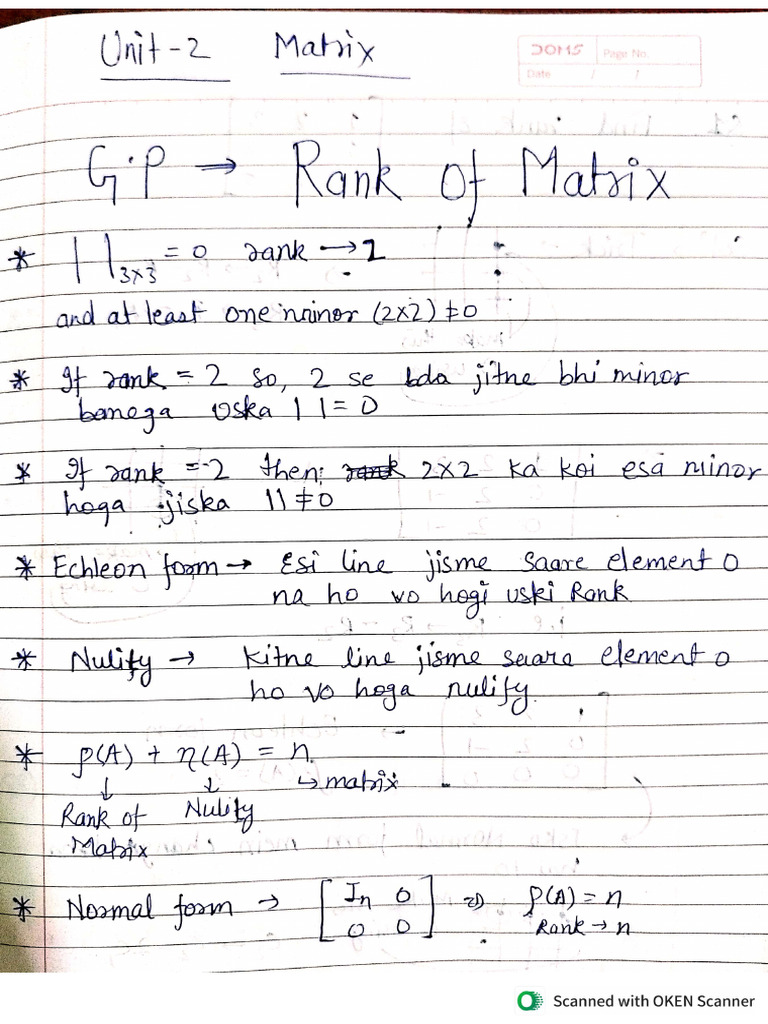 Unit-2 Matrix
DOMS Page No.
Date / /
G.P → Rank Of Matrix
* | |3x3 = 0 rank → 2
and at least one minor (2x2) ≠ 0
* If rank = 2 so, 2 se bda jitne bhi minor
banega uska | | = 0
* If rank = 2 then; 2x2 ka koi esa minor
hoga jiska | | ≠ 0
* Echleon form → Esi line jisme saare element 0
na ho vo hogi uski Rank
* Nulity → Kitne line jisme saare element 0
ho vo hoga nulity.
* ρ(A) + η(A) = n
↓ ↓ ↳ matrix
Rank of Nulity
Matrix
* Normal form → [In 0 ⇒ ρ(A) = n
0 0] Rank → n
Scanned with OKEN Scanner